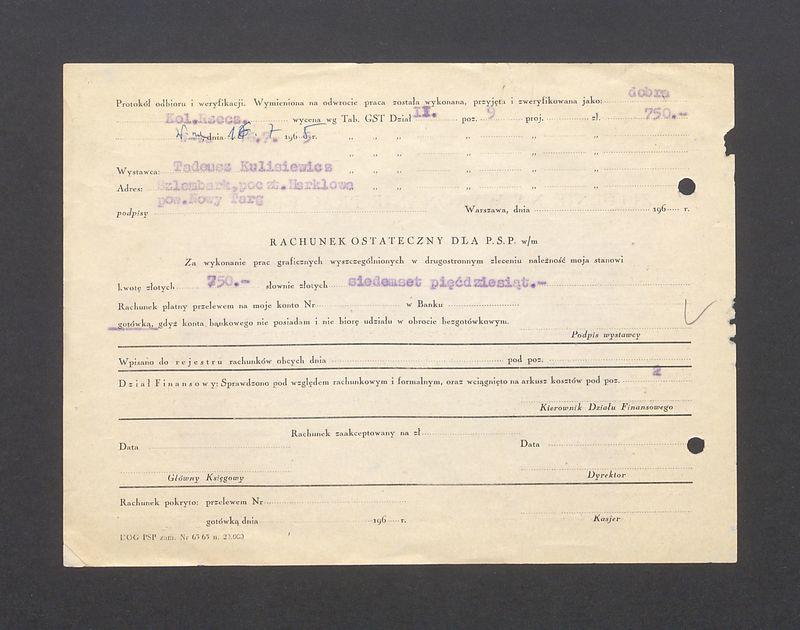 Protokół odbioru i weryfikacji. Wymieniona na odwrocie praca została wykonana, przyjęta i zweryfikowana jako: dobra
Kol.Rzecz. wycena wg Tab. GST Dział II. poz. 9 proj. zł 750.-
dnia 16.7. 1965 r. " " " " "
" " " " "
Wystawca: Tadeusz Kulisiewicz " " " " "
Adres: Szlembark, poczt. Harklowa " " " " "
pow. Nowy Targ
podpisy Warszawa, dnia 196 r.
RACHUNEK OSTATECZNY DLA P.S.P. w/m
Za wykonanie prac graficznych wyszczególnionych w drugostronnym zleceniu należność moja stanowi
kwotę złotych 750.- słownie złotych siedemset pięćdziesiąt.-
Rachunek płatny przelewem na moje konto Nr w Banku
gotówką, gdyż konta bankowego nie posiadam i nie biorę udziału w obrocie bezgotówkowym.
Podpis wystawcy
Wpisano do rejestru rachunków obcych dnia pod poz.
Dział Finansowy: Sprawdzono pod względem rachunkowym i formalnym, oraz wciągnięto na arkusz kosztów pod poz. 2
Kierownik Działu Finansowego
Rachunek zaakceptowany na zł
Data Data
Główny Księgowy Dyrektor
Rachunek pokryto: przelewem Nr
gotówką dnia 196 r. Kasjer
DOG PSP zam. Nr 6565 n. 20.000